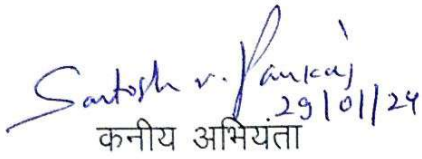 Santosh v. Pankaj
29/01/24
कनीय अभियंता